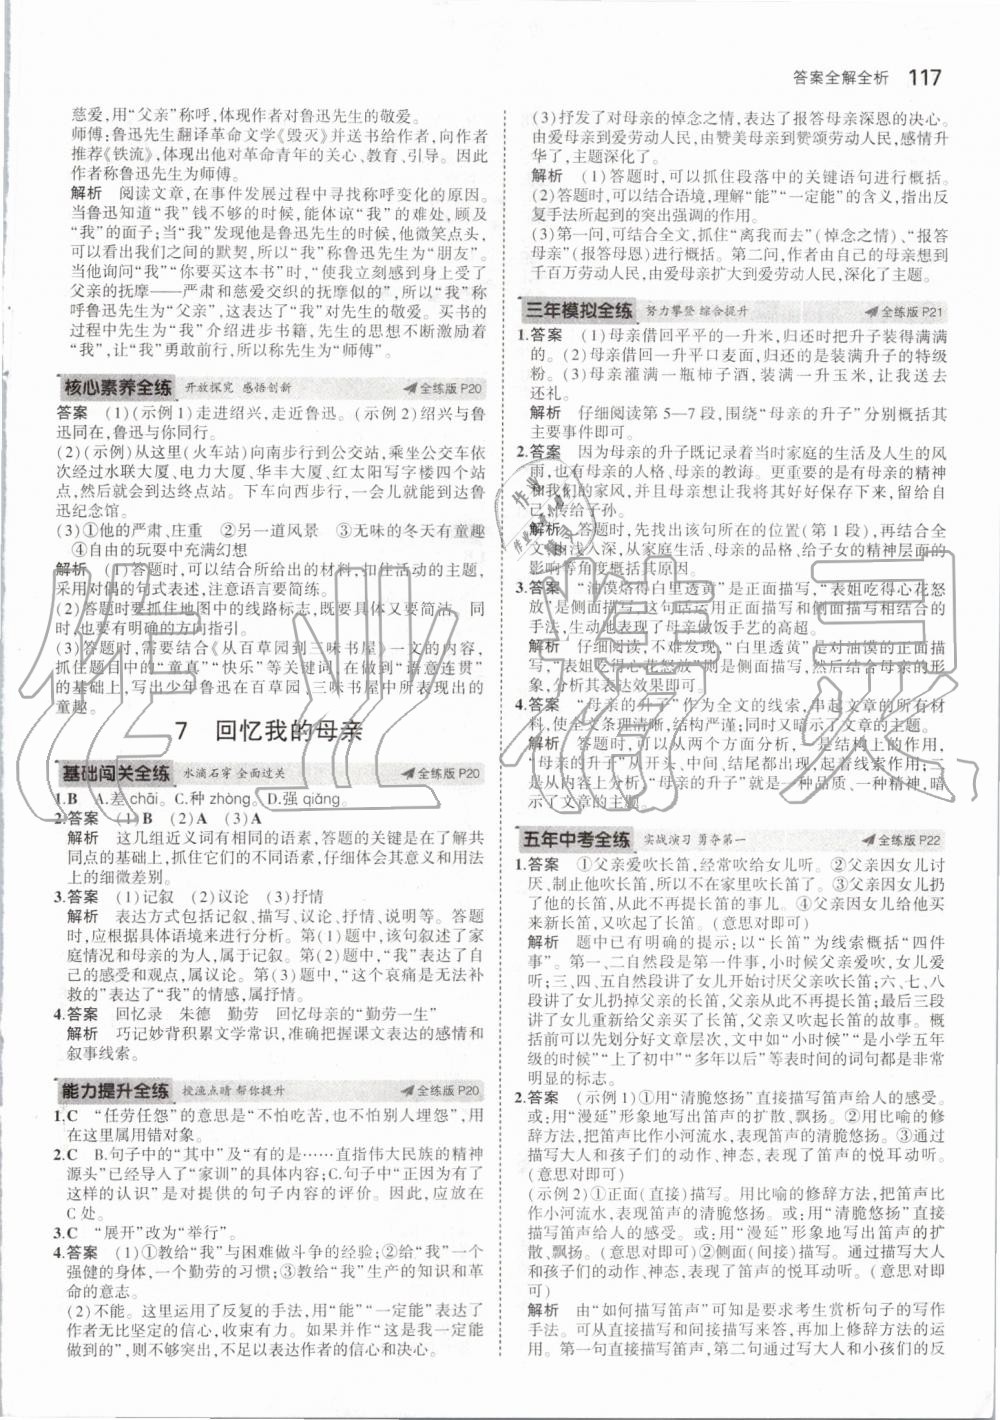 答案全解全析 117
慈爱,用“父亲”称呼,体现作者对鲁迅先生的敬爱。
师傅:鲁迅先生翻译革命文学《毁灭》并送书给作者,向作者
推荐《铁流》,体现出他对革命青年的关心、教育、引导。因此
作者称鲁迅先生为师傅。
解析 阅读文章,在事件发展过程中寻找称呼变化的原因。
当鲁迅知道“我”钱不够的时候,能体谅“我”的难处,顾及
“我”的面子;当“我”发现他是鲁迅先生的时候,他微笑点头,
可以看出我们之间的默契,所以“我”称鲁迅先生为“朋友”。
当他询问“我”“你要买这本书”时,“使我立刻感到身上受了
父亲的抚摩——严肃和慈爱交织的抚摩似的”,所以“我”称
呼鲁迅先生为“父亲”,这表达了“我”对先生的敬爱。买书的
过程中先生为“我”介绍进步书籍,先生的思想不断激励着
“我”,让“我”勇敢前行,所以称先生为“师傅”。
核心素养全练 开放探究 感悟创新 全练版 P20
答案 (1)(示例1)走进绍兴,走近鲁迅。(示例2)绍兴与鲁
迅同在,鲁迅与你同行。
(2)(示例)从这里(火车站)向南步行到公交站,乘坐公交车依
次经过水联大厦、电力大厦、华丰大厦、红太阳写字楼四个站
点,然后就会到达终点站。下车向西步行,一会儿就能到达鲁
迅纪念馆。
(3)①他的严肃、庄重 ②另一道风景 ③无味的冬天有童趣
④自由的玩耍中充满幻想
解析 (1)答题时,可以结合所给出的材料,扣住活动的主题,
采用对偶的句式表述,注意语言要简练。
(2)答题时要抓住地图中的线路标志,既要具体又要简洁。同
时,也要有明确的方向指引。
(3)答题时,需要结合《从百草园到三味书屋》一文的内容,
抓住题目中的“童真”“快乐”等关键词,在做到“语意连贯”
的基础上,写出少年鲁迅在百草园、三味书屋中所表现出的
童趣。
7 回忆我的母亲
基础闯关全练 水滴石穿 全面过关 全练版 P20
1.B A.差 chāi。C.种 zhòng。D.强 qiǎng。
2.答案 (1)B (2)A (3)A
解析 这几组近义词有相同的语素,答题的关键是在了解共
同点的基础上,抓住它们不同的语素,仔细体会其意义和用法
上的细微差别。
3.答案 (1)记叙 (2)议论 (3)抒情
解析 表达方式包括记叙、描写、议论、抒情、说明等。答题
时,应根据具体语境来进行分析。第(1)题中,该句叙述了家
庭情况和母亲的为人,属于记叙。第(2)题中,“我”表达了自
己的感受和观点,属议论。第(3)题中,“这个哀痛是无法补
救的”表达了“我”的情感,属抒情。
4.答案 回忆录 朱德 勤劳 回忆母亲的“勤劳一生”
解析 巧记妙背积累文学常识,准确把握课文表达的感情和
叙事线索。
能力提升全练 授渔点睛 帮你提升 全练版 P20
1.C “任劳任怨”的意思是“不怕吃苦,也不怕别人埋怨”,用
在这里属用错对象。
2.C B.句子中的“其中”及“有的是……直指伟大民族的精神
源头”已经导入了“家训”的具体内容;C.句子中“正因为有了
这样的认识”是对提供的句子内容的评价。因此,应放在
C处。
3.C “展开”改为“举行”。
4.答案 (1)①教给“我”与困难做斗争的经验;②给“我”一个
强健的身体,一个勤劳的习惯;③教给“我”生产的知识和革
命的意志。
(2)不能。这里运用了反复的手法,用“能”“一定能”表达了
作者无比坚定的信心,收束有力。如果并作“这是我一定能
做到的”,则不够突出,不足以表达作者的信心和决心。
(3)抒发了对母亲的悼念之情,表达了报答母亲深恩的决心。
由爱母亲到爱劳动人民,由赞美母亲到赞颂劳动人民,感情升
华了,主题深化了。
解析 (1)答题时,可以抓住段落中的关键语句进行概括。
(2)答题时,可以结合语境,理解“能”“一定能”的含义,指出反
复手法所起到的突出强调的作用。
(3)第一问,可结合全文,抓住“离我而去”(悼念之情)、“报答
母亲”(报答母恩)进行概括。第二问,作者由自己的母亲想到
千百万劳动人民,由爱母亲扩大到爱劳动人民,深化了主题。
三年模拟全练 努力攀登 综合提升 全练版 P21
1.答案 (1)母亲借回平平的一升米,归还时把升子装得满满
的。(2)母亲借回一升平口麦面,归还的是装满升子的特级
粉。(3)母亲灌满一瓶柿子酒,装一升大红枣,让我去送
还礼。
解析 仔细阅读第5—7段,围绕“母亲的升子”分别概括其
主要事件即可。
2.答案 因为母亲的升子既记录着当时家庭的生活及人生的风
雨,也有母亲的人格、母亲的教诲。更重要的是有母亲的精神
和我们的家风,并且母亲想让我将其好好保存下来,留给自
己,传给子孙。
解析 答题时,先找出该句所在的位置(第1段),再结合全
文,由浅入深,从家庭生活、母亲的品格、给子女的精神层面的
影响等角度概括其原因。
3.答案 “油馍烙得白里透黄”是正面描写,“表姐吃得心花怒
放”是侧面描写,这句话运用正面描写和侧面描写相结合的
手法,生动地表现了母亲做饭手艺的高超。
解析 仔细阅读,不难发现,“白里透黄”是对油馍的正面描
写,“表姐吃得心花怒放”则是侧面描写,然后结合母亲形
象,分析其表达效果即可。
4.答案 “母亲的升子”作为全文的线索,串起文章的所有材
料,使全文条理清晰,结构严谨;同时又暗示了文章的主题。
解析 答题时,可以从两个方面分析,一是结构上的作用,
“母亲的升子”从开头、中间、结尾都出现,有贯穿文章始终的
作用;二是主题上,“母亲的升子”是一种品质、一种精神,暗
示了文章的主题。
五年中考全练 实战演习 勇夺第一 全练版 P22
1.答案 ①父亲爱吹长笛,经常吹给女儿听。②父亲因女儿讨
厌、制止他吹长笛,所以不在家里吹长笛了。③父亲因女儿扔
了他的长笛,从此不再提长笛的事儿。④父亲因女儿给他买
来新长笛,又吹起了长笛。(意思对即可)
解析 题中已有明确的提示:以“长笛”为线索概括“四件
事”。第一、二自然段是第一件事,小时候父亲爱吹、女儿爱
听;三、四、五自然段讲了女儿开始讨厌父亲吹长笛;六、七、八
段讲了女儿扔掉父亲的长笛,父亲从此不再提长笛;最后三段
讲了女儿重新给父亲买了长笛,父亲又吹起长笛的故事。概
括前可以先划分好文章层次,文中如“小时候”“是小学五年
级的时候”“上了初中”“多年以后”等表时间的词句都是非常
明显的标志。
2.答案 (示例1)①用“清脆悠扬”直接描写笛声给人的感受。
或:用“漫延”形象地写出笛声的扩散、飘扬。②用比喻的修
辞方法,把笛声比作小河流水,表现了笛声的清脆悠扬。③通
过描写大人和孩子们的动作、神态,表现了笛声的悦耳动听。
(意思对即可)
(示例2)①正面(直接)描写。用比喻的修辞方法,把笛声比
作小河流水,表现了笛声的清脆悠扬。或:用“清脆悠扬”直
接描写笛声给人的感受。或:用“漫延”形象地写出笛声的扩
散、飘扬。(意思对即可)②侧面(间接)描写。通过描写大人
和孩子们的动作、神态,表现了笛声的悦耳动听。(意思对即
可)
解析 由“如何描写笛声”可知是要求考生赏析句子的写作
手法。可从直接描写和间接描写来答,再加上修辞方法的运
用。第一句直接描写笛声,第二句通过写大人和小孩们的反